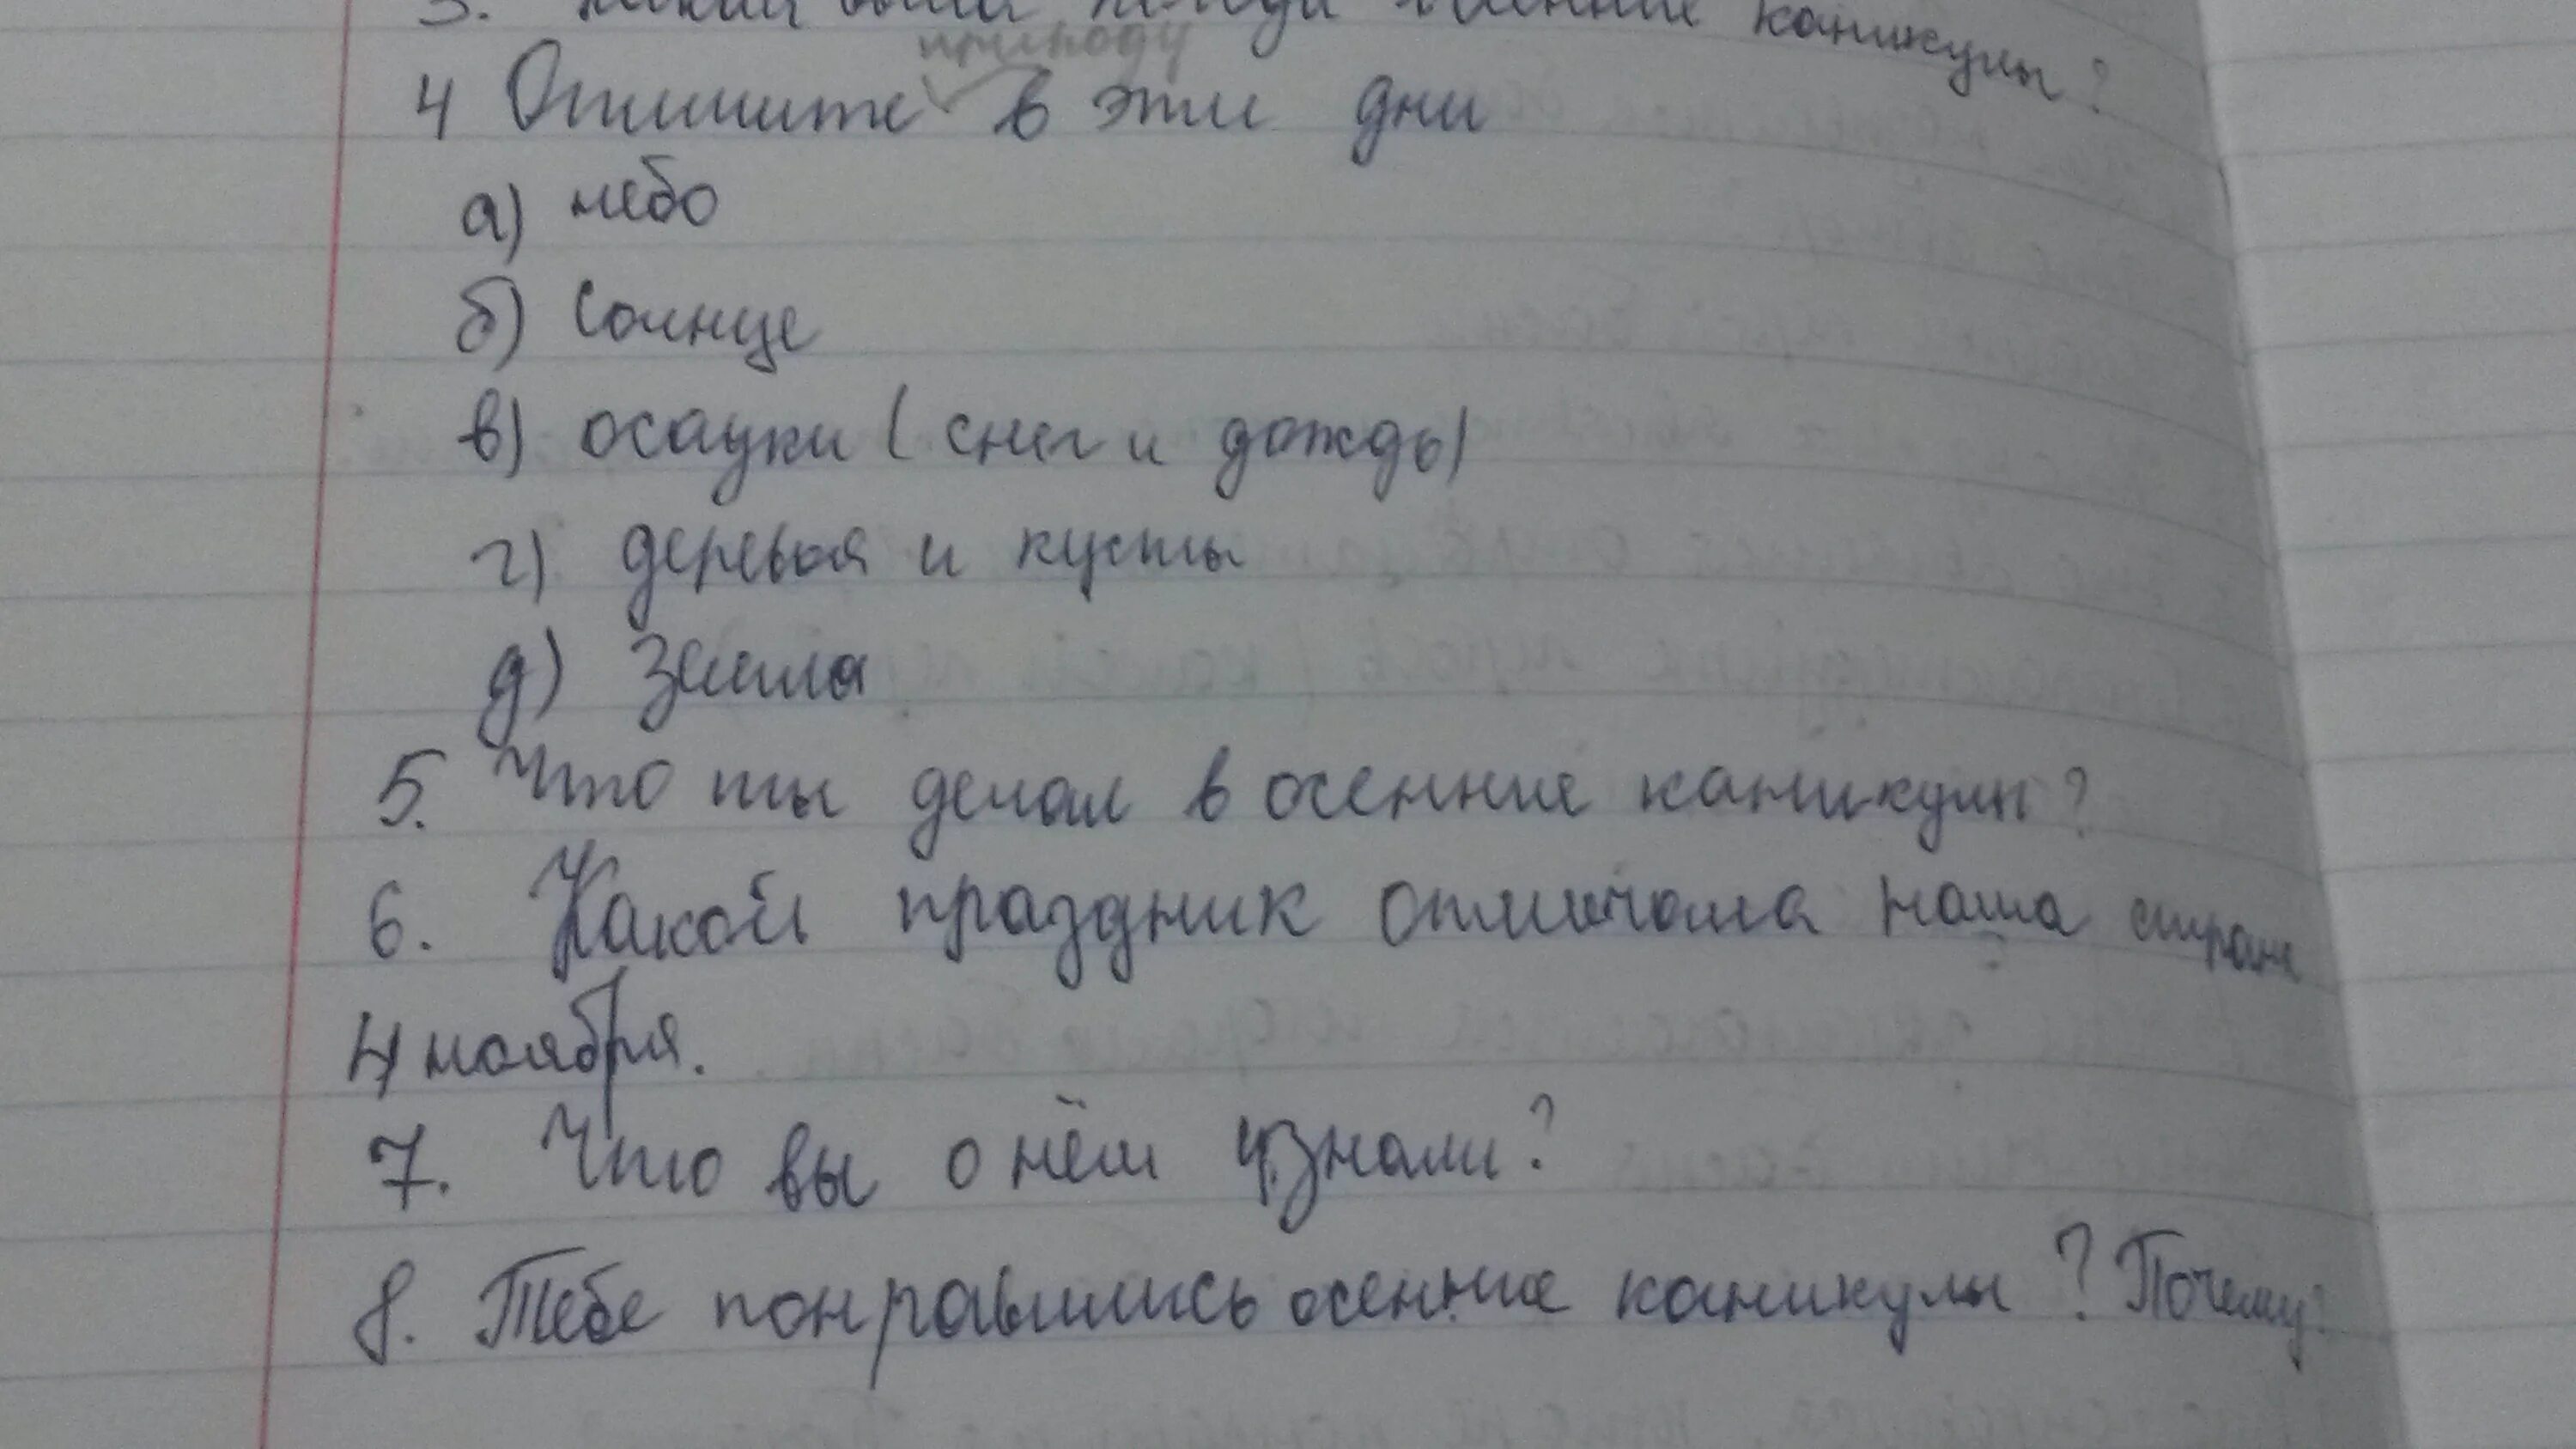 3. Какая была погода в осенние каникулы?
природу
4 Опишите в эти дни
а) небо
б) солнце
в) осадки (снег и дождь)
г) деревья и кусты
д) Земля
5. Что ты делал в осенние каникулы?
6. Какой праздник отмечала наша страна
4 ноября.
7. Что вы о нём узнали?
8. Тебе понравились осенние каникулы? Почему?